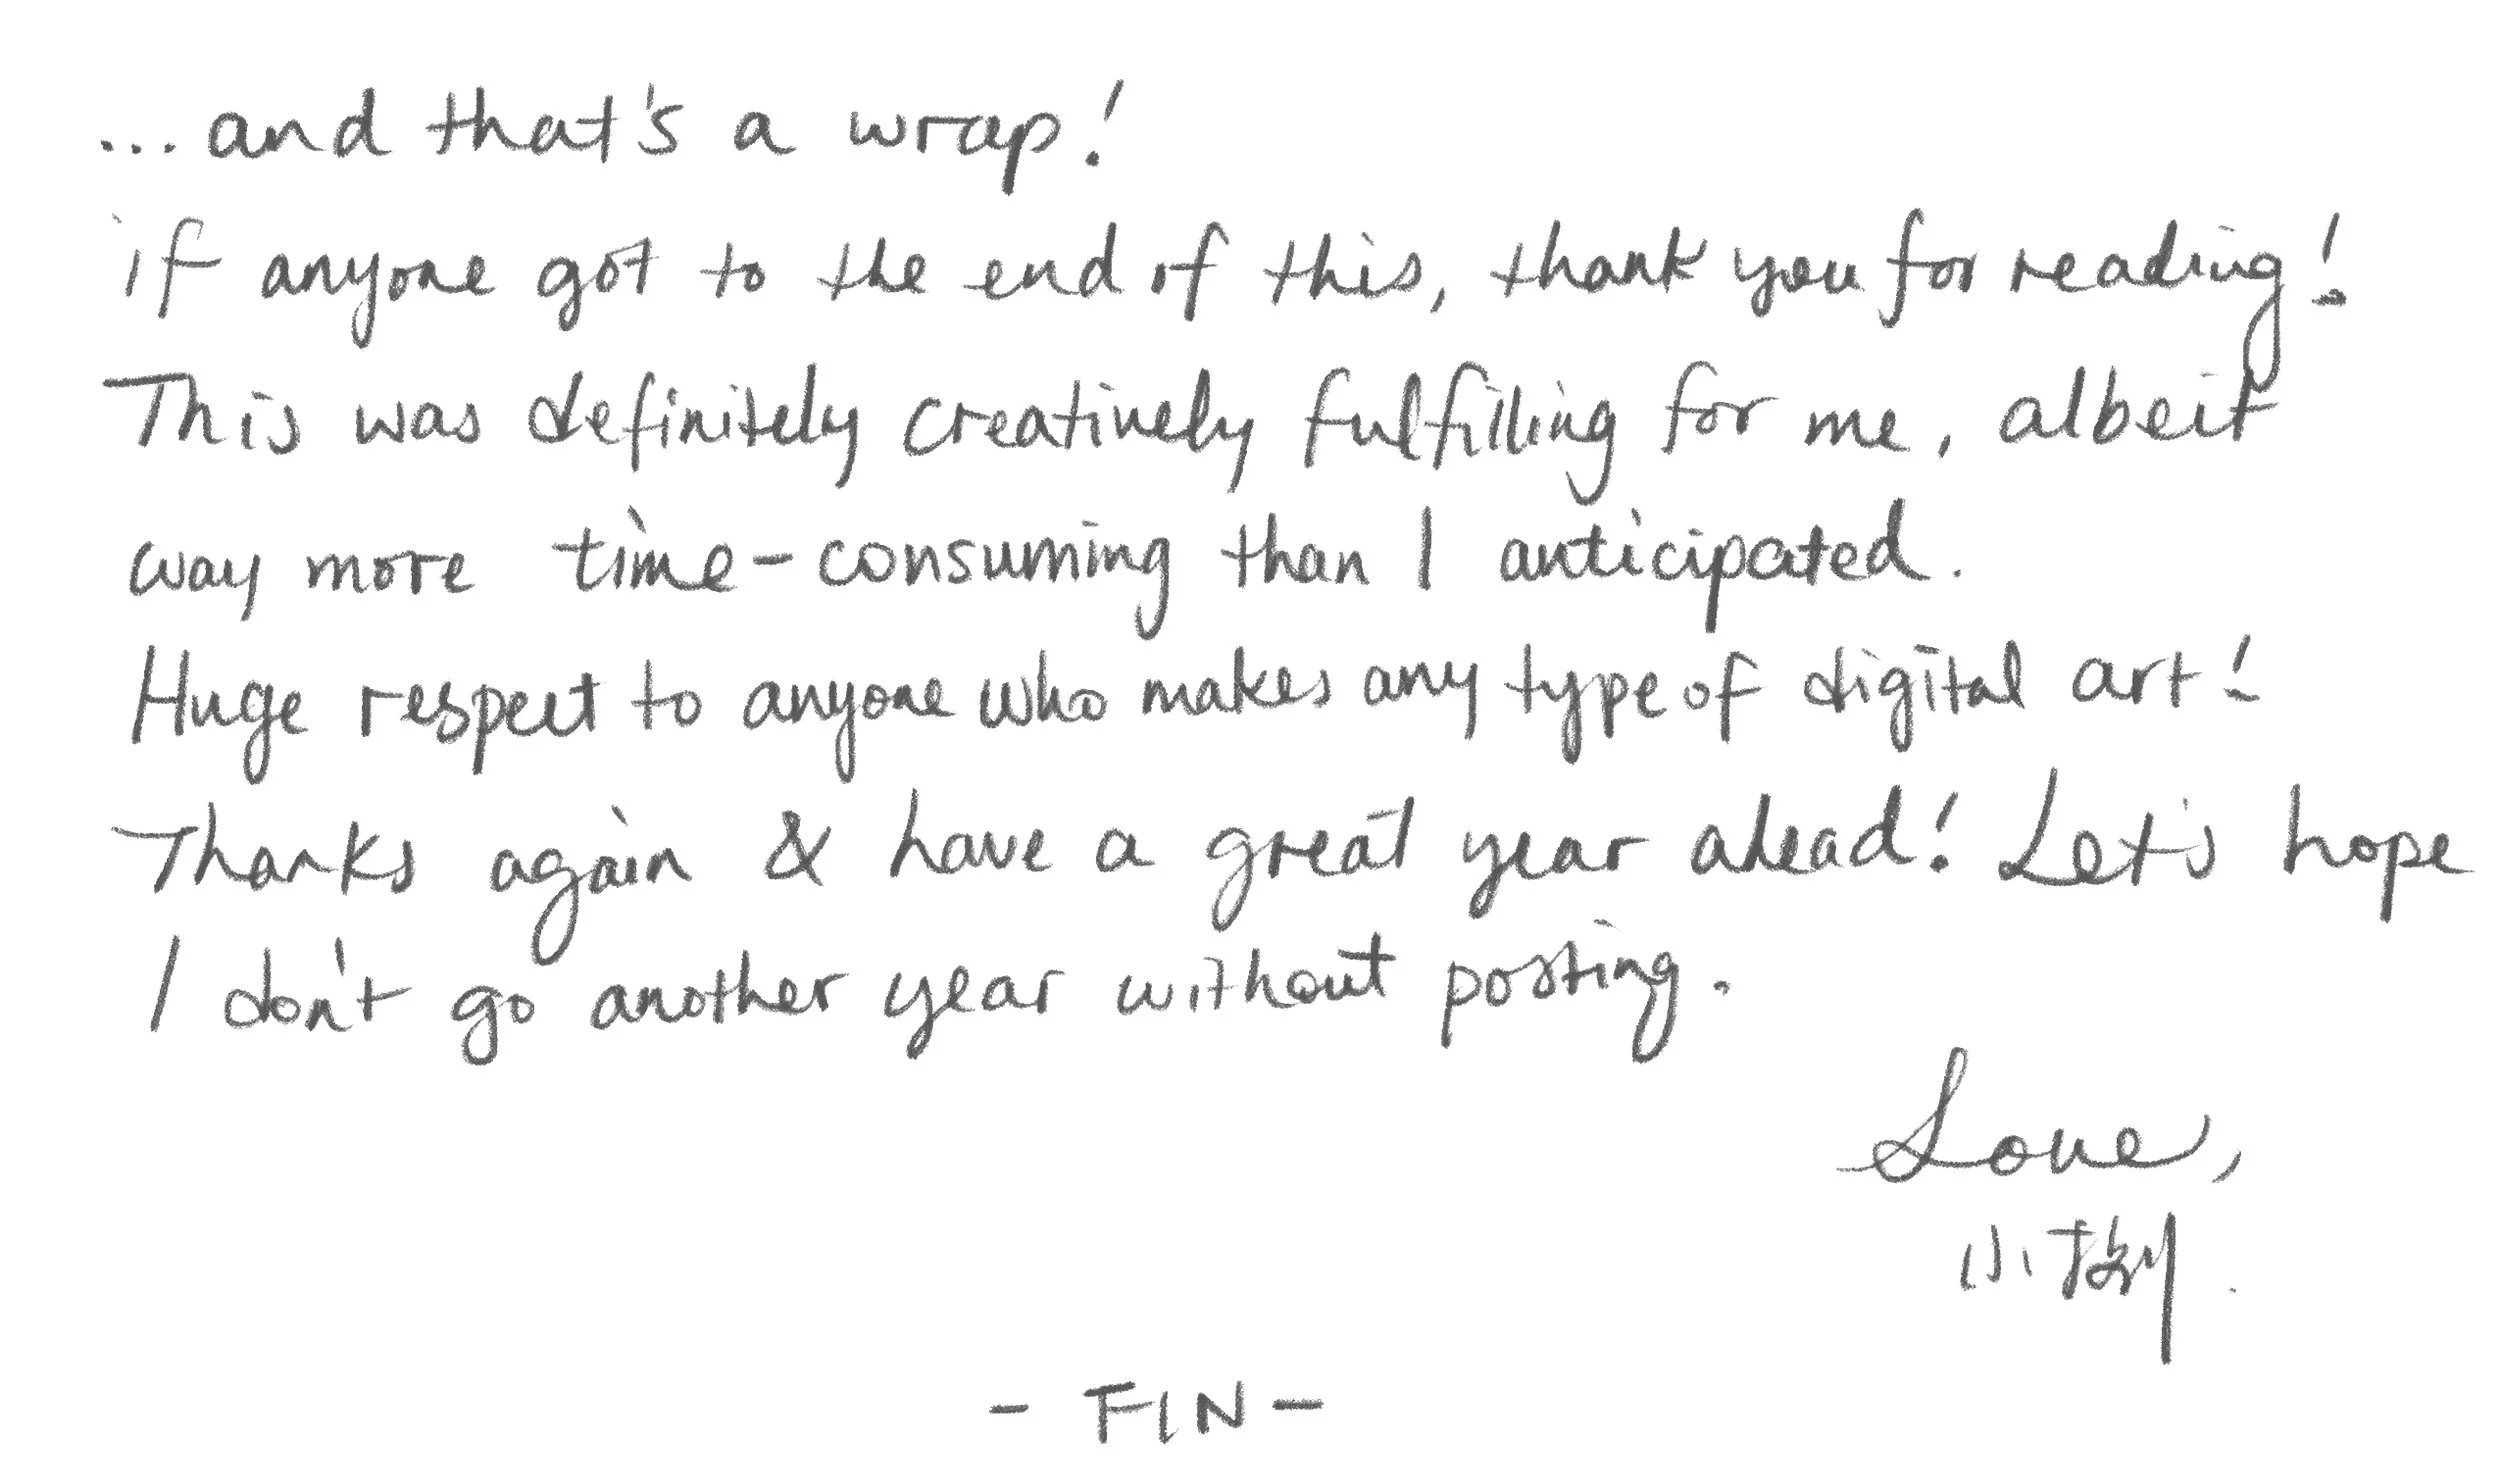 ...and that's a wrap!
if anyone got to the end of this, thank you for reading!
This was definitely creatively fulfilling for me, albeit
way more time-consuming than I anticipated.
Huge respect to anyone who makes any type of digital art!
Thanks again & have a great year ahead! Let's hope
I don't go another year without posting.
Love,
小
- FIN -